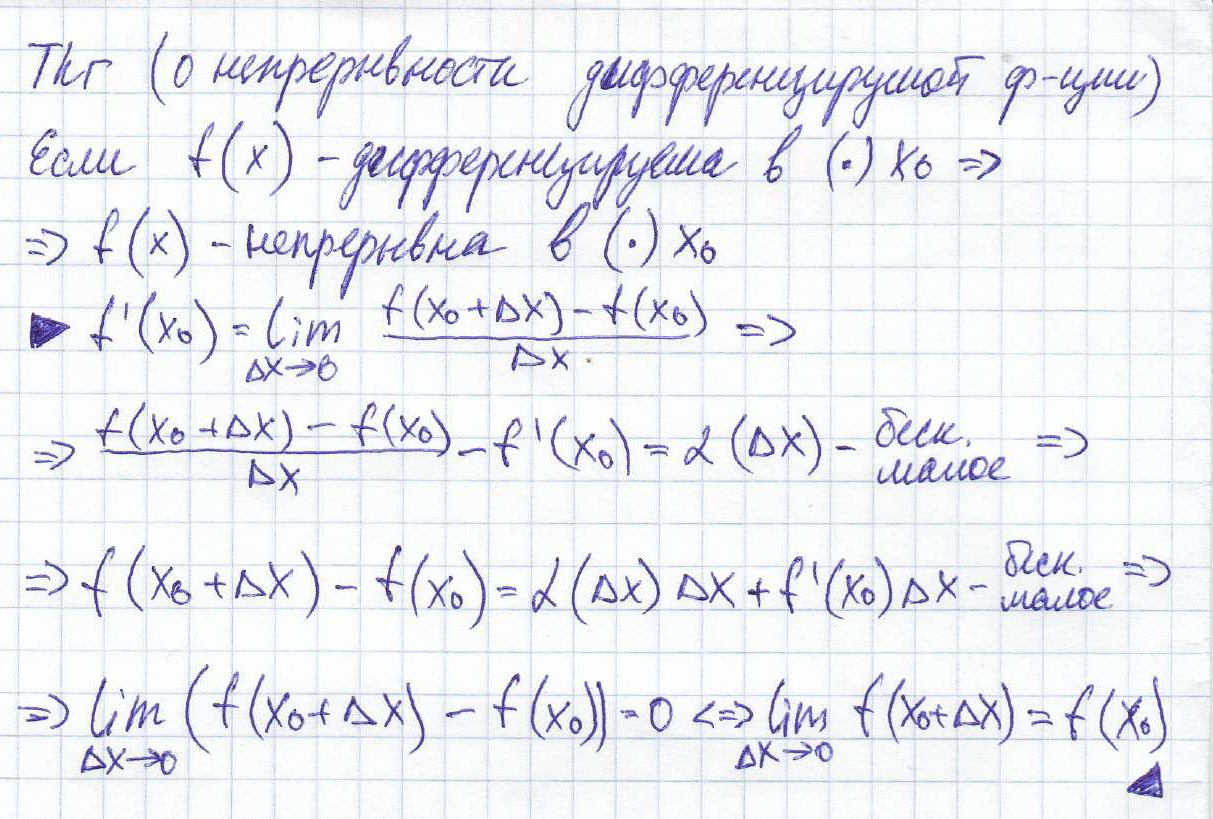 Thг (о непрерывности дифференцируемой ф-ции)
Если f(x) - дифференцируема в (·) x₀ =>
=> f(x) - непрерывна в (·) x₀
▶ f'(x₀) = lim_{Δx→0} (f(x₀+Δx) - f(x₀))/Δx =>
=> (f(x₀+Δx) - f(x₀))/Δx - f'(x₀) = α(Δx) - беск. малое =>
=> f(x₀+Δx) - f(x₀) = α(Δx)Δx + f'(x₀)Δx - беск. малое =>
=> lim_{Δx→0} (f(x₀+Δx) - f(x₀)) = 0 <=> lim_{Δx→0} f(x₀+Δx) = f(x₀)
◀